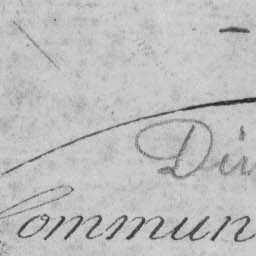 Div
Commun